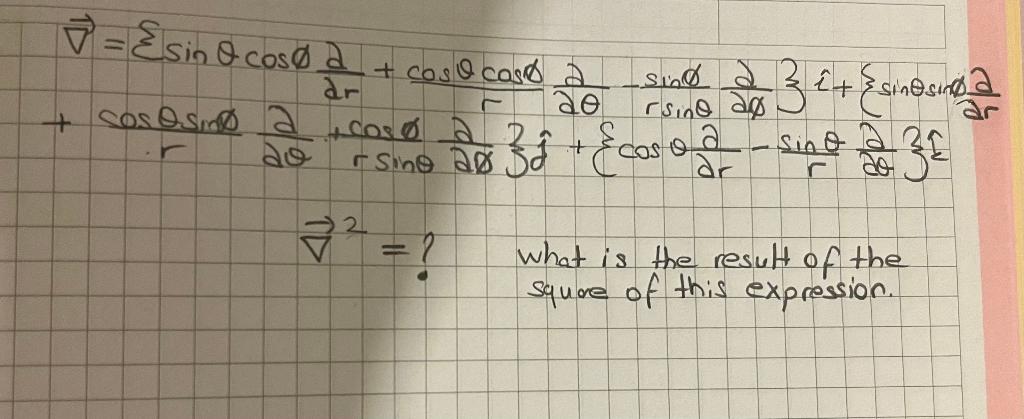 ∇⃗ = {sinθcosø ∂/∂r + cosθcosø/r ∂/∂θ - sinø/rsinθ ∂/∂ø} î + {sinθsinø ∂/∂r
+ cosθsinø/r ∂/∂θ + cosø/rsinθ ∂/∂ø} ĵ + {cosθ ∂/∂r - sinθ/r ∂/∂θ} k̂
∇⃗² = ? what is the result of the
square of this expression.